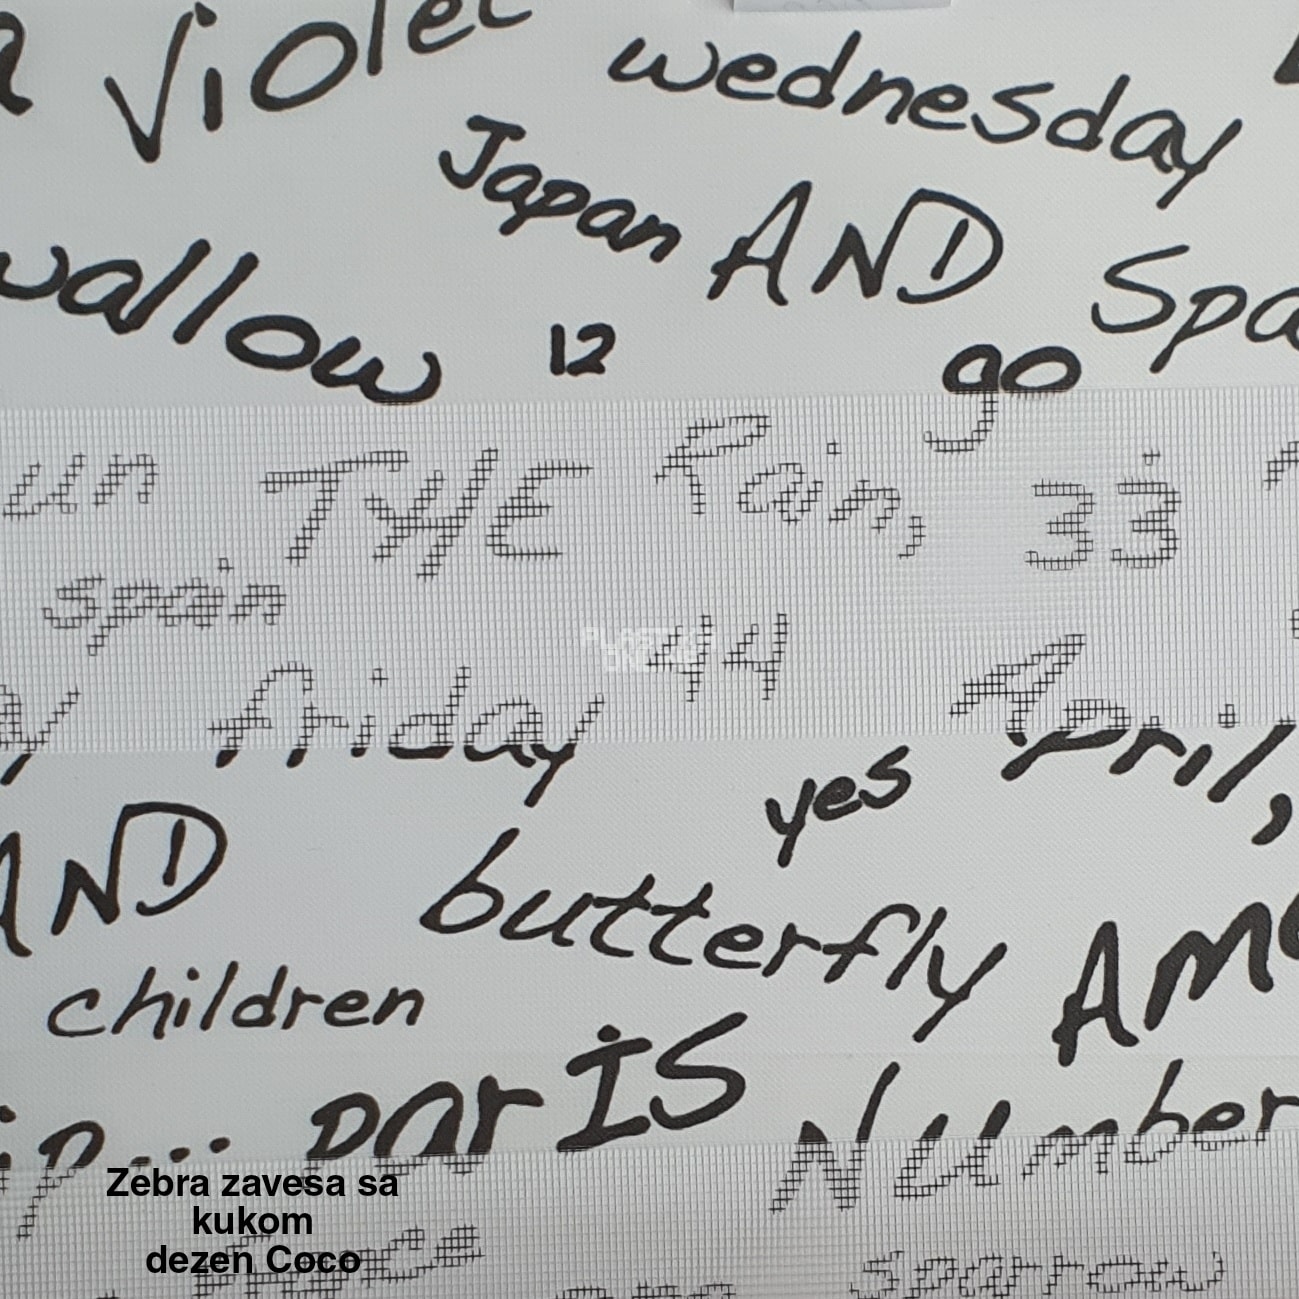 Violet
wednesday
Japan AND Spa
wallow
12
go
un THE Rain, 33
spain
44
friday
April,
yes
AND
butterfly
children
AM
IS
Number
Zebra zavesa sa
kukom
dezen Coco
sparrow